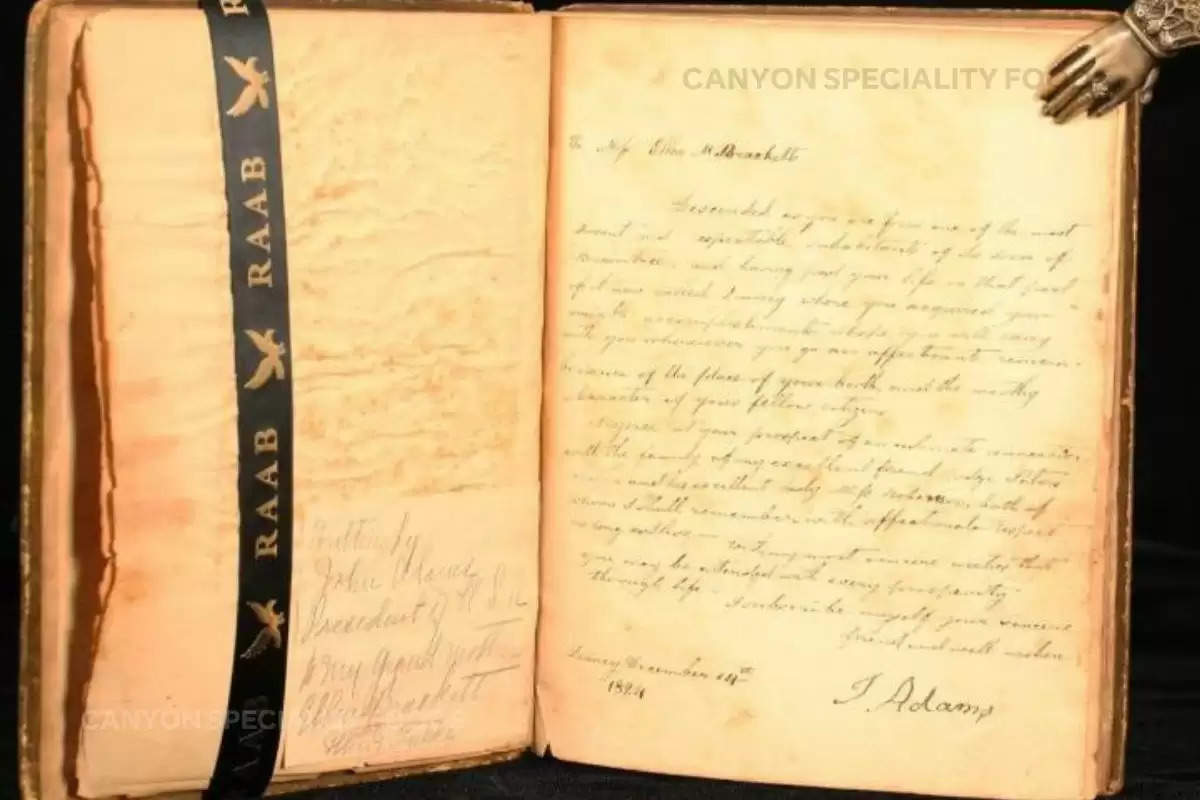 R
RAAB
RAAB
CANYON SPECIALITY FO
CANYON SPECI
Written by
John Adams
President of U S A
to my Grand Mother
Eliza Brackett
To Miss Eliza M Brackett
Descended as you are from one of the most
ancient and respectable inhabitants of the town of
Braintree, and having past your life in that part
of it now called Quincy where you acquired your
accomplishments which you will carry
with you wherever you go an affectionate remem-
brance of the place of your birth, and the worthy
character of your fellow citizens
I rejoice at your prospect of an intimate connection
with the family of my excellent friend Judge
and his excellent lady both of
whom I shall remember with affectionate respect
as long as I live. With my most sincere wishes that
you may be attended with every prosperity
through life I subscribe myself your sincere
friend and well wisher
Quincy December 14th
1824
J. Adams